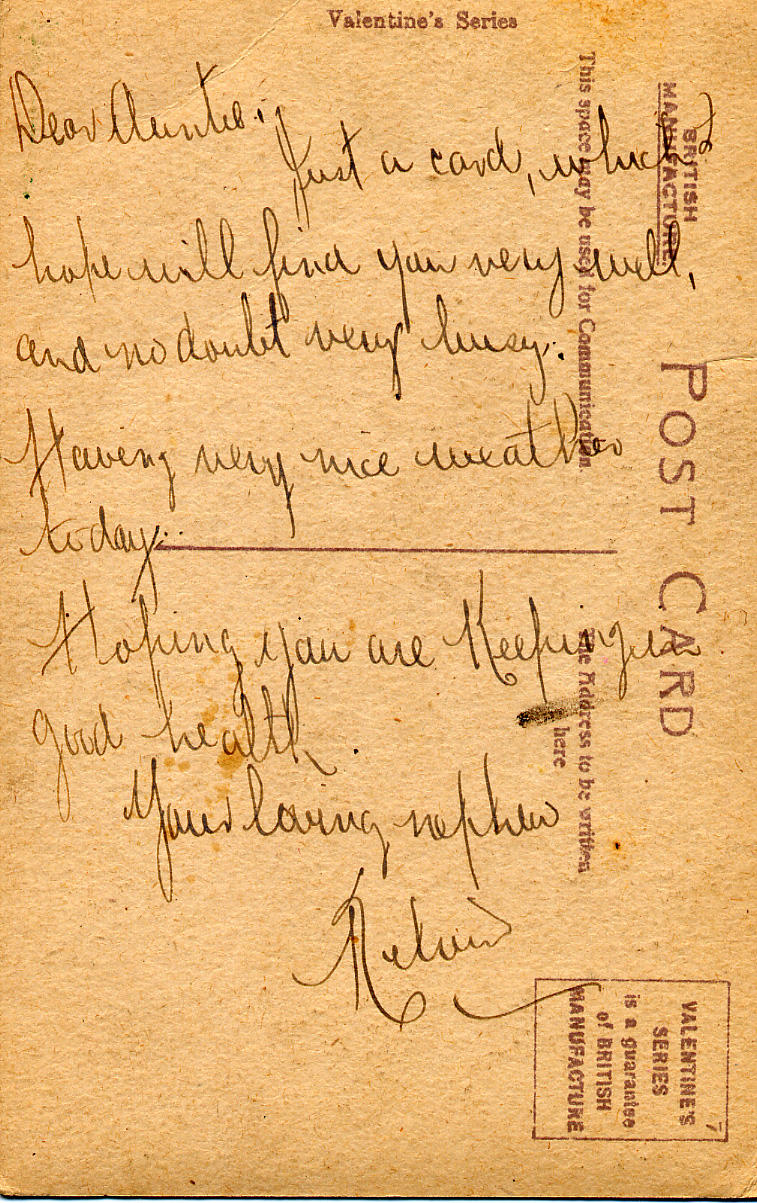 Valentine's Series
Dear Auntie:
Just a card, which I
hope will find you very well,
and no doubt very busy.
Having very nice weather
today.
Hoping you are Keeping in
good health.
Your loving nephew
BRITISH
MANUFACTURE.
POST CARD
This space may be used for Communication.
The Address to be written
here
VALENTINE'S
SERIES
is a guarantee
of BRITISH
MANUFACTURE
7